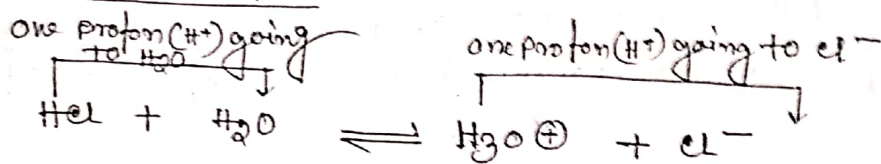 one proton (H+) going
to H2O
one proton (H+) going to Cl⁻
HCl + H2O ⇌ H3O⊕ + Cl⁻